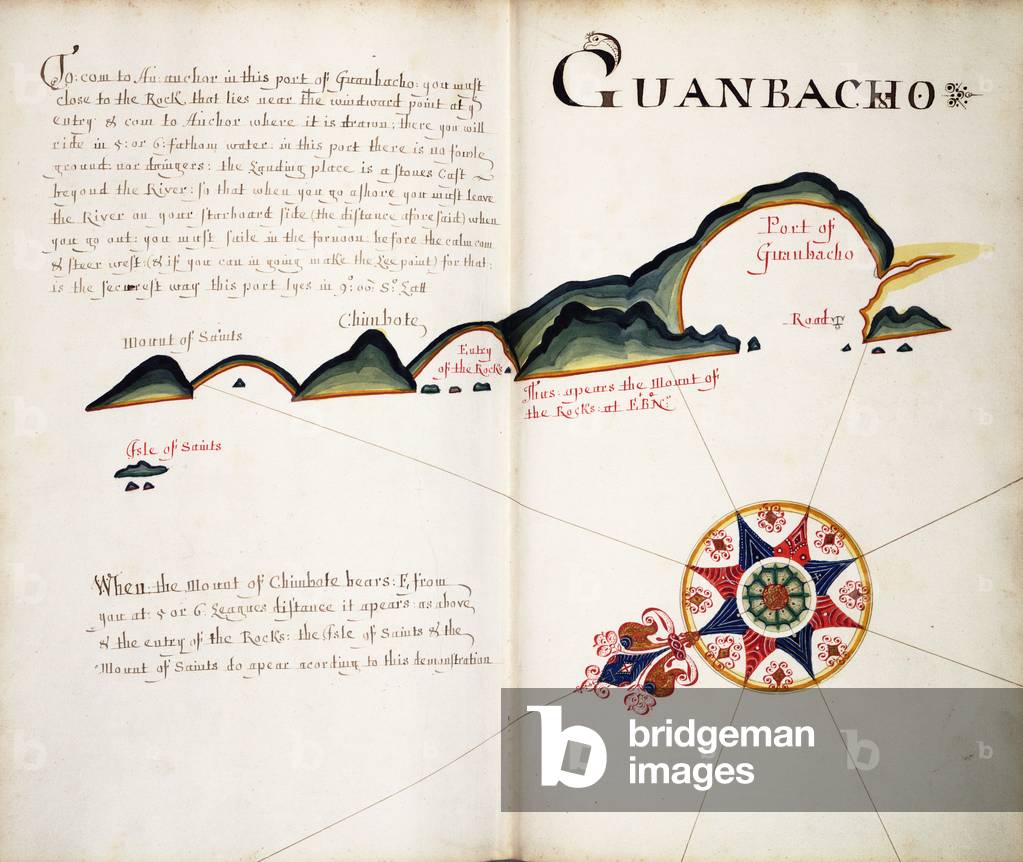 To: com to An: anchor in this port of Guanbacho: you must
close to the Rock that lies near the windward point at yᵉ
entry & com to Anchor where it is drawn; there you will
ride in 5: or 6: fathom water: in this port there is no fowle
ground nor daingers: the Landing place is a stones Cast
beyond the River: so that when you go ashore you must leave
the River on your starboard side (the distance aforesaid) when
you go out: you must saile in the fornoon before the calm com
& steer west: (& if you can in going make the Lee point) for that:
is the securest way this port lyes in 9°: 00: S°: Latt
GUANBACHO
Port of
Guanbacho
Road
Chimbote
Mount of Saints
Entry
of the Rocks
Thus: apears the Mount of
the Rocks: at E:B:N:
Isle of Saints
When: the Mount of Chimbote bears: E from
you at 5 or 6 Leagues distance it apears: as above
& the entry of the Rocks: the Isle of Saints & the
Mount of Saints do apear acording to this demonstration
b bridgeman
images